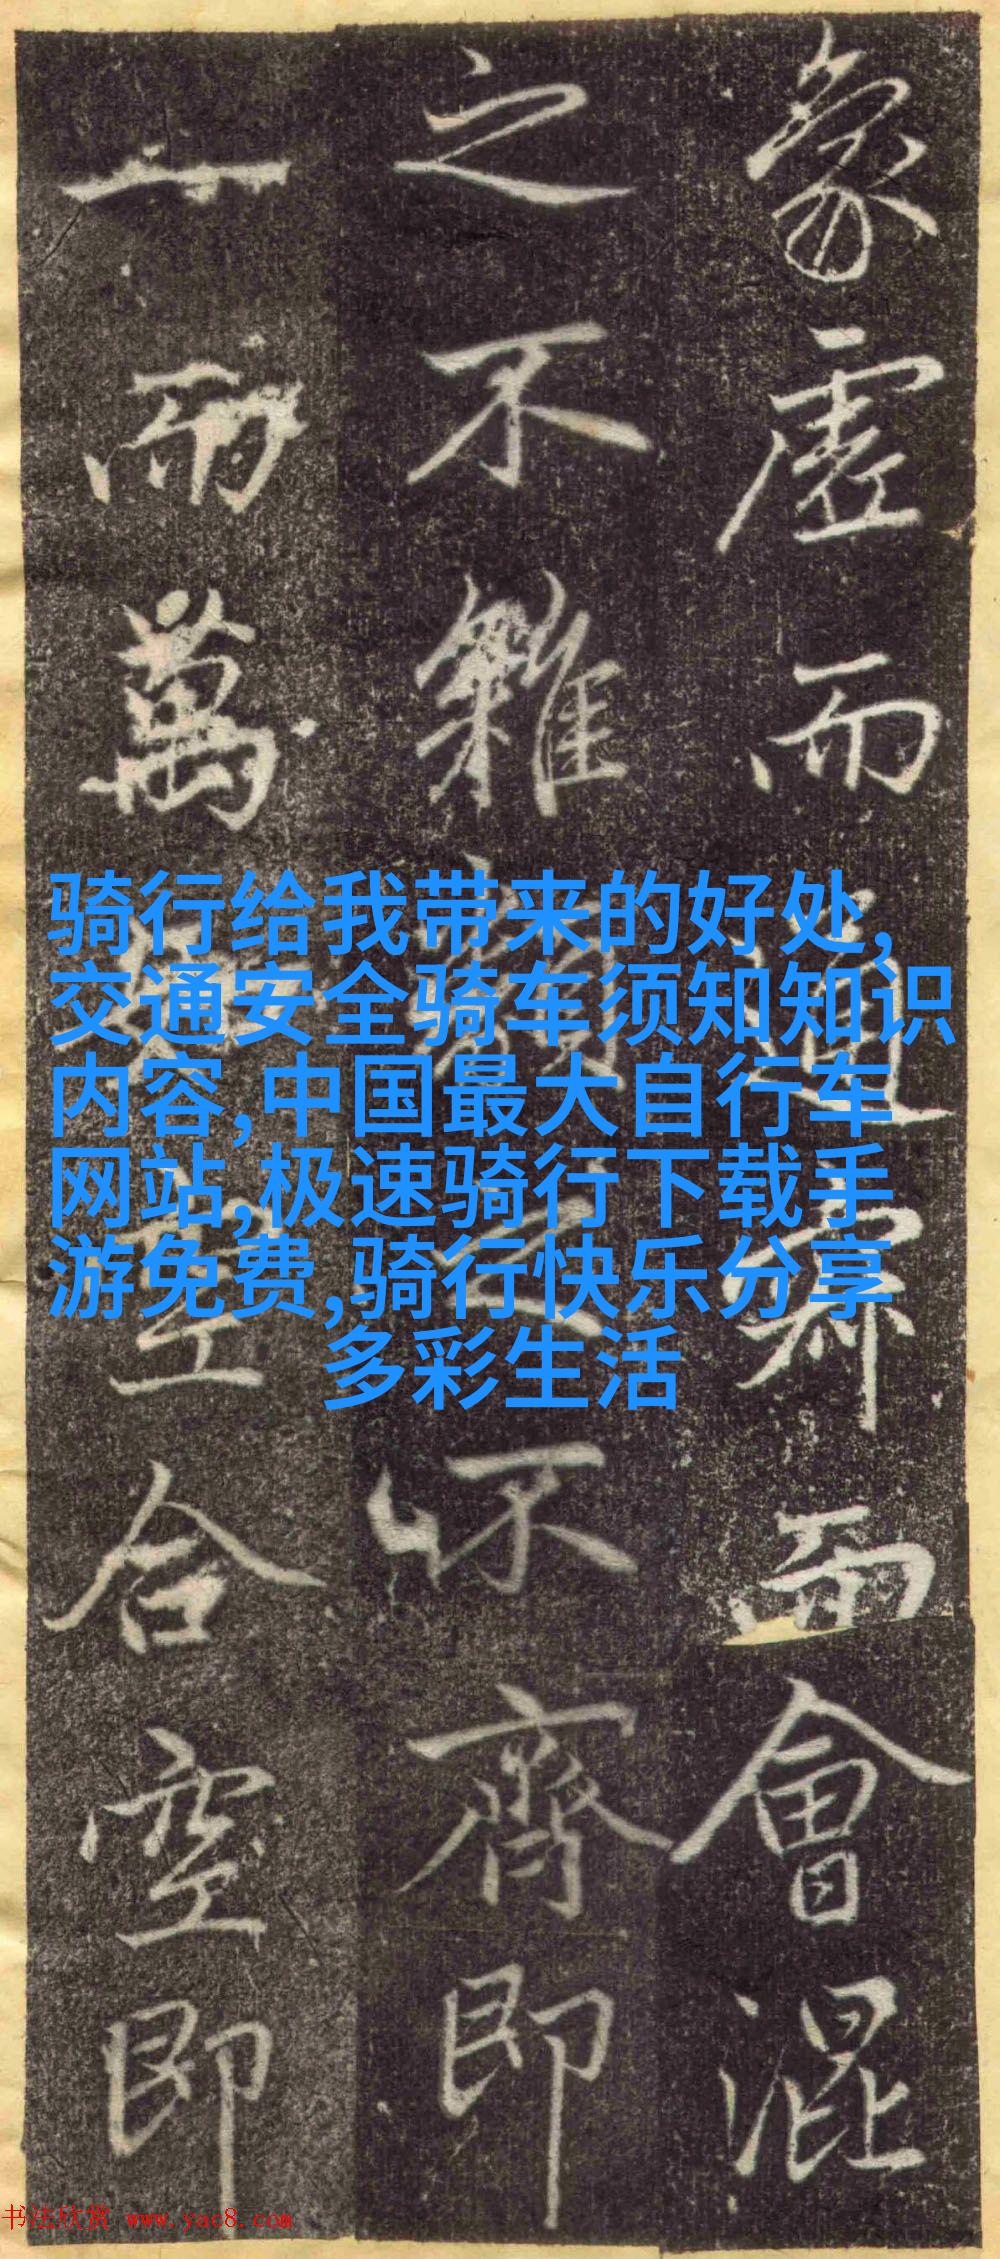 象虛而通而會混
之不雜之不齊即
一而萬空合空即
骑行给我带来的好处,
交通安全骑车须知知识
内容,中国最大自行车
网站,极速骑行下载手
游免费,骑行快乐分享
多彩生活
书法欣赏 www.yac8.com